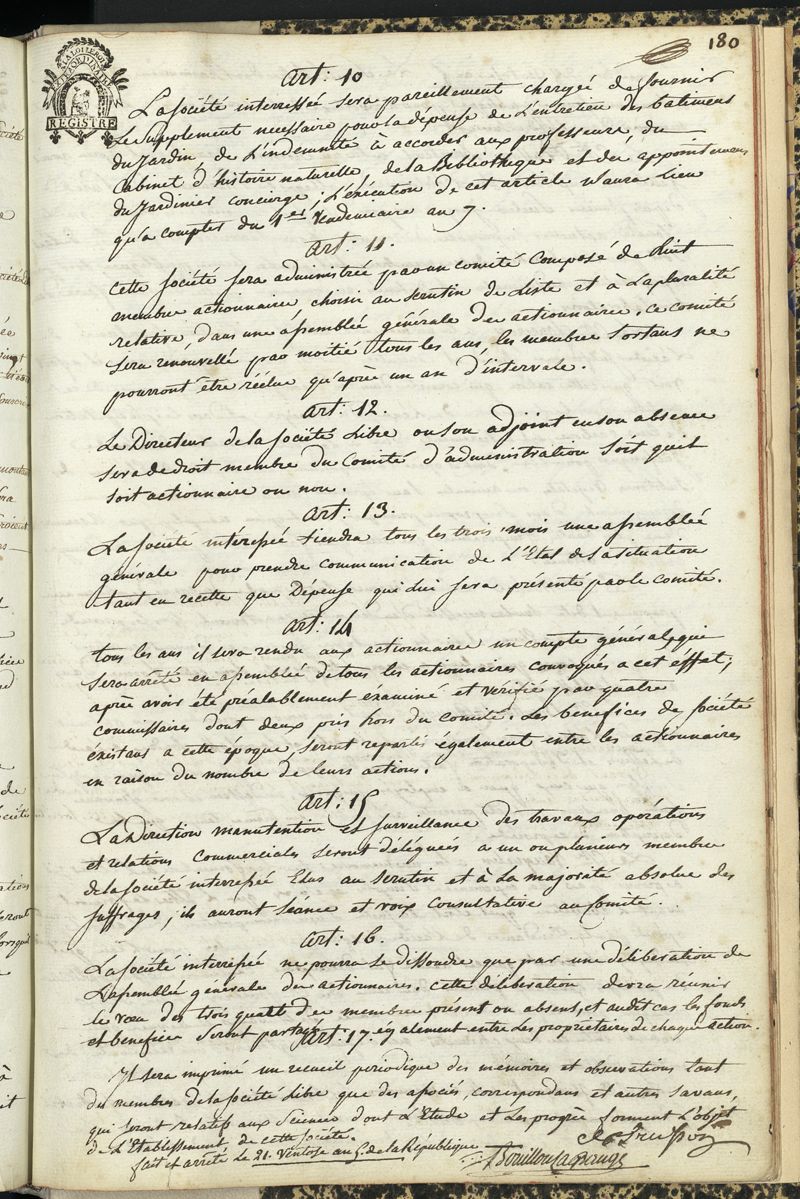 180
A LA LOI LE ROI
REGISTRE
Art: 10
La Société interressée sera pareillement chargée de fournir
le Supplement necessaire pour la dépense de L'entretien des batimens
du Jardin, de L'indemnité à accorder aux professeurs, du
Cabinet d'histoire naturelle, de la Bibliotheque et des appointemens
du Jardinier concierge; L'exécution de cet article n'aura lieu
qu'a compter du 1er Vendemiaire an 7.
Art: 11.
Cette Société sera administrée par un comité Composé de Huit
membres actionnaires choisis au scrutin de Liste et à La pluralité
relative, dans une assemblée générale des actionnaires. Ce Comité
sera renouvellé par moitié tous les ans, les membres sortans ne
pourront être réélus qu'après un an d'intervale.
Art: 12.
Le Directeur de la Société Libre ou son adjoint en son absence
sera de droit membre du Comité d'administration soit quil
soit actionnaire ou non.
Art: 13.
La Société intéressée tiendra tous les trois mois une assemblée
générale pour prendre communication de L'Etat de la situation
tant en recette que Dépense qui lui sera présenté par le Comité.
Art: 14
tous les ans il sera rendu aux actionnaires un compte général, qui
sera arrêté en assemblée de tous les actionnaires convoqués a cet effet;
après avoir été préalablement examiné et vérifié par quatre
commissaires dont deux pris hors du Comité. Les benefices de Société
éxistans a cette époque, seront repartis également entre les actionnaires
en raison du nombre de leurs actions.
Art: 15
La Direction manutention et surveillance des travaux opérations
et relations Commerciales seront déléguées a un ou plusieurs membres
de la Société interressée Elus au scrutin et à La majorité absolue des
suffrages; ils auront séance et voix Consultative au Comité.
Art: 16.
La Société interressée ne pourra se dissoudre que par une déliberation de
L'assemblée générale des actionnaires. Cette déliberation devra réunir
le voeu des trois quarts des membres présent ou absens, et audit cas les fonds
et benefices seront partagés également entre Les propriétaires de chaque action.
Art: 17.
Il sera imprimé un recueil periodique des mémoires et observations tant
des membres de la Société Libre que des associés, correspondans et autres savans,
qui seront relatifs aux Sciences dont L'Etude et Les progrès forment L'objet
de L'Etablissement de cette Société.
fait et arrêté Le 21. Ventose an 6. de la République
Bouillon La Grange